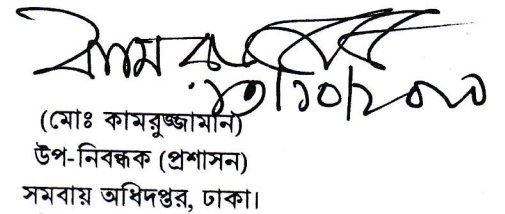 (মোঃ কামরুজ্জামান)
উপ-নিবন্ধক (প্রশাসন)
সমবায় অধিদপ্তর, ঢাকা।